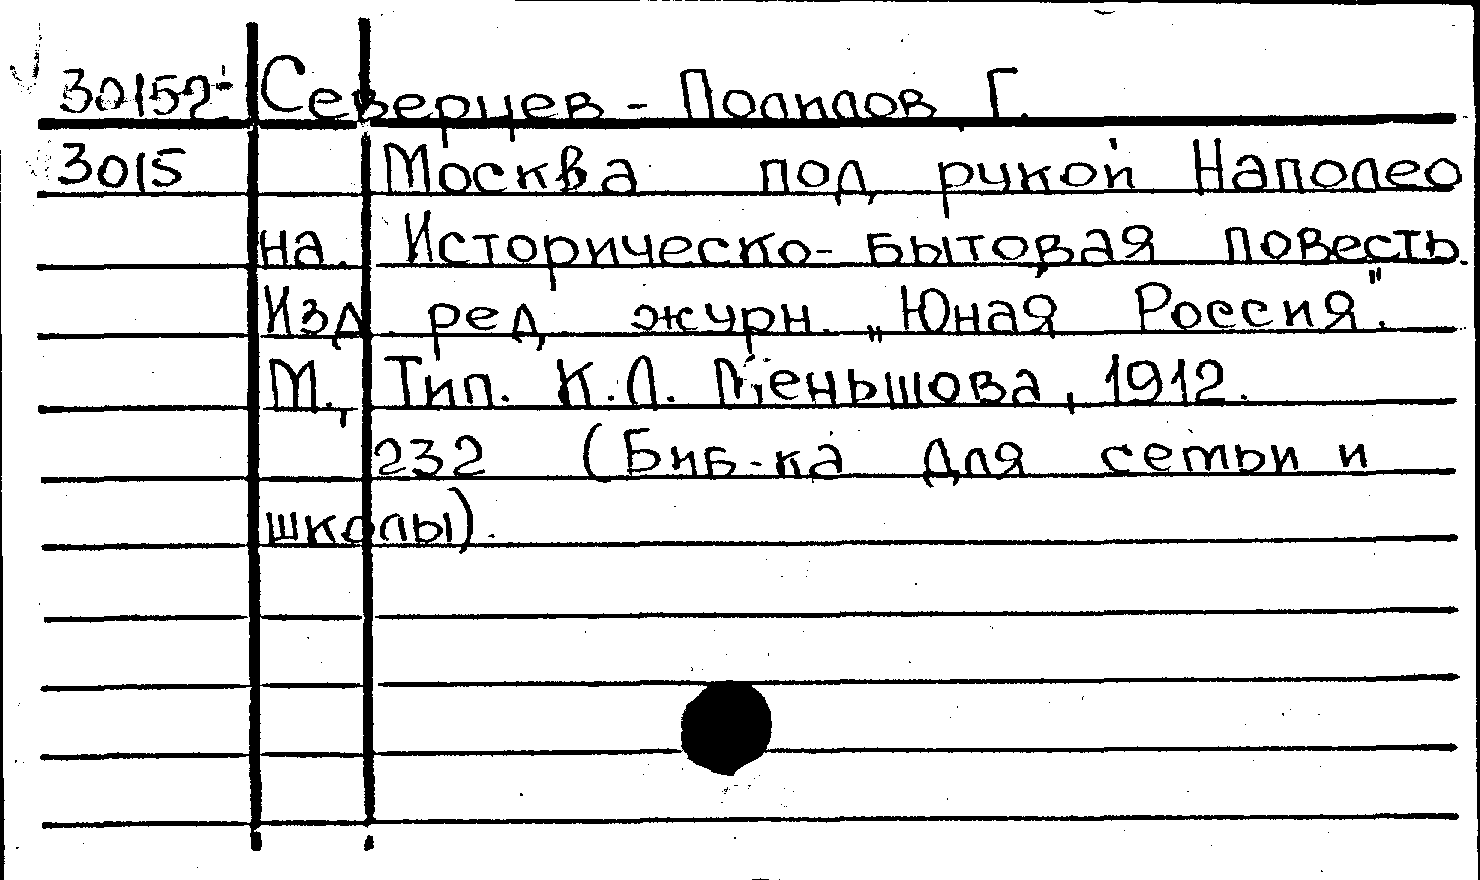 30152- Северцев - Полилов Г.
3015 Москва под рукой Наполео
на. Историческо-бытовая повесть.
Изд. ред. журн. „Юная Россия".
М., Тип. К.Л. Меньшова, 1912.
232 (Биб-ка для семьи и
школы).